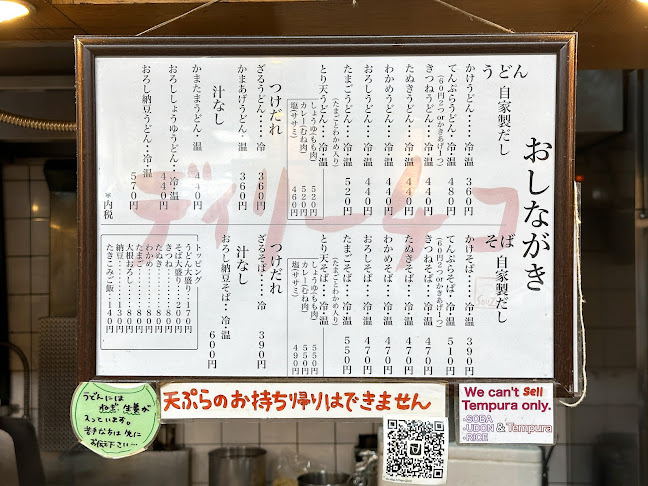 おしながき
うどん 自家製だし
かけうどん・・・冷・温 360円
てんぷらうどん・・冷・温 480円
(60円2つorかきあげ1つ)
きつねうどん・・冷・温 440円
たぬきうどん・・冷・温 440円
わかめうどん・・冷・温 440円
おろしうどん・・冷・温 440円
たまごうどん・・冷・温 520円
(たまごとわかめ入り)
とり天うどん・・冷・温
しょうゆ(もも肉) 520円
カレー(むね肉) 520円
塩(ササミ) 460円
つけだれ
ざるうどん・・・・冷 360円
かまあげうどん・・温 360円
汁なし
かまたまうどん・・温 440円
おろししょうゆうどん・・冷・温 440円
おろし納豆うどん・・冷・温 570円
※内税
そば 自家製だし
かけそば・・・冷・温 390円
てんぷらそば・・冷・温 510円
(60円2つorかきあげ1つ)
きつねそば・・冷・温 470円
たぬきそば・・冷・温 470円
わかめそば・・冷・温 470円
おろしそば・・冷・温 470円
たまごそば・・冷・温 550円
(たまごとわかめ入り)
とり天そば・・冷・温
しょうゆ(もも肉) 550円
カレー(むね肉) 550円
塩(ササミ) 490円
つけだれ
ざるそば・・・・冷 390円
汁なし
おろし納豆そば・・冷・温 600円
トッピング
うどん大盛り・・170円
そば大盛り・・・200円
きつね・・・・・80円
たぬき・・・・・80円
わかめ・・・・・80円
たまご・・・・・80円
大根おろし・・・80円
納豆・・・・・130円
たきこみご飯・・140円
デイリーチコ
うどんには
ねぎ 生姜が
入っています。
苦手な方は先に
お伝え下さい…
天ぷらのお持ち帰りはできません
We can't sell
Tempura only.
・SOBA
・UDON & Tempura
・RICE